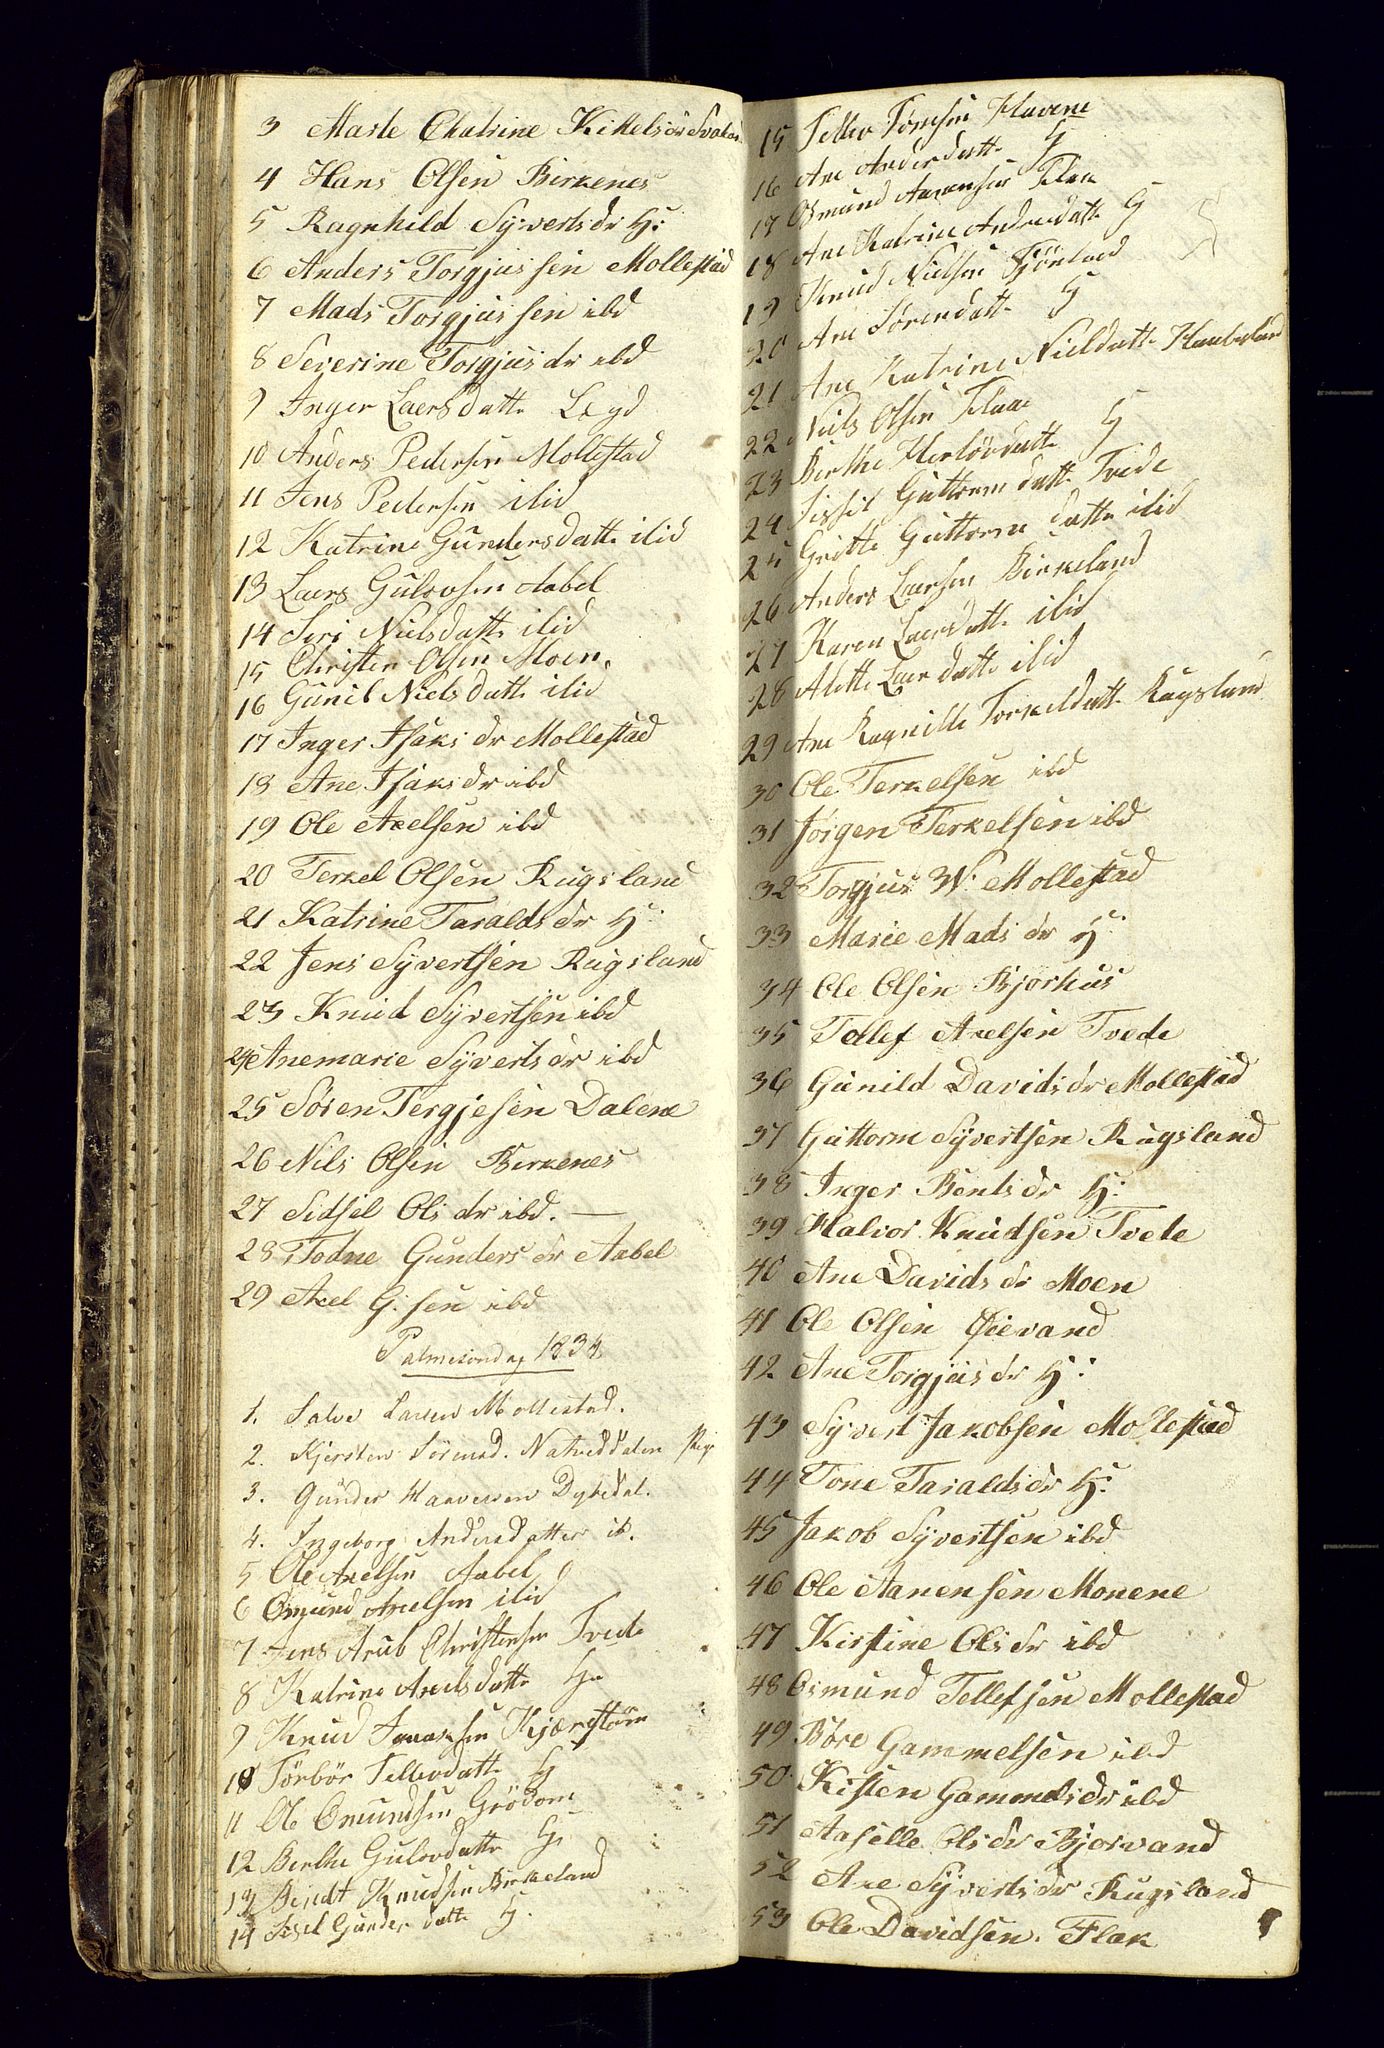 3 Marte Chatrine Kittelsdr Svala
4 Hans Olsen Birkenes
5 Ragnhild Syvertsdr H:
6 Anders Torgjussen Mollestad
7 Mads Torgjussen ibd
8 Severine Torgjusdr ibd
9 Inger Laersdatte Lægd
10 Anders Pedersen Mollestad
11 Jens Pedersen ibid
12 Katrine Gundersdatte ibid
13 Laers Gulovsen Aabel
14 Siri Nielsdatte ibid
15 Christen Olsen Moen
16 Gunil Nielsdatte ibid
17 Inger Isaksdr Mollestad
18 Ane Isaksdr ibd
19 Ole Axelsen ibd
20 Terkel Olsen Rugsland
21 Katrine Taraldsdr H:
22 Jens Syvertsen Rugsland
23 Knud Syvertsen ibd
24 Anemarie Syvertsdr ibd
25 Søren Tergjesen Dalene
26 Nils Olsen Birkenes
27 Sidsel Olsdr ibd. —
28 Todne Gundersdr Aabel
29 Axel G:sen ibd
Palmesøndag 1834
1. Salve Larsen Mollestad.
2. Kjersten Sörensd. Natveddalen
3. Gunder Haavorsen Dybedal.
4. Ingeborg Andersdatter ib.
5 Ole Axelsen Aabel
6 Omund Axelsen ibid
7 Jens Arub Christensen Tvede
8 Katrine Axelsdatte H
9 Knud Isaaksen Kjærstöm
10 Törbör Tellevdatte H
11 Ole Omundsen Grödom
12 Berthe Gulovdatte H
13 Bendt Knudsen Birkeland
14 Sisel Gunderdatte H.
15 Tellev Tomesen Flavene
16 Ane Anderdatte H
17 Osmund Aanensen Flaa
18 Ane Katrine Andersdatte H
19 Knud Nielsen
20 Ane Sörendatte H
21 Ane Katrine Nieldatte
22 Niels Olsen Flaae
23 Berthe Herlövdatte H
24 Sissil Guttormdatte Tvede
25 Gritte Guttormdatte ibid
26 Anders Laersen Birkeland
27 Karen Laersdatte ibid
28 Alette Laerdatte ibid
29 Ane Ragnille Torkeldatte Rugsland
30 Ole Terkelsen ibd
31 Jørgen Terkelsen ibd
32 Torgjus W. Mollestad
33 Marie Madsdr H:
34 Ole Olsen Bjorhus
35 Tellef Axelsen Tvede
36 Gunild Davidsdr Mollestad
37 Guttorm Syvertsen Rugsland
38 Inger Bentsdr H:
39 Halvor Knudsen Tvede
40 Ane Davidsdr Moen
41 Ole Olsen Øievand
42. Ane Torgjusdr H:
43 Syvert Jakobsen Mollestad
44 Tone Taraldsdr H:
45 Jakob Syvertsen ibd
46 Ole Aanensen Monene
47 Kirstine Olsdr ibd
48 Osmund Tellefsen Mollestad
49 Böre Gammelsen ibd
50 Kisten Gammelsdr ibd
51 Aaselle Olsdr Bjorvand
52 Ane Syvertsdr Rugsland
53 Ole Davidsen. Flak